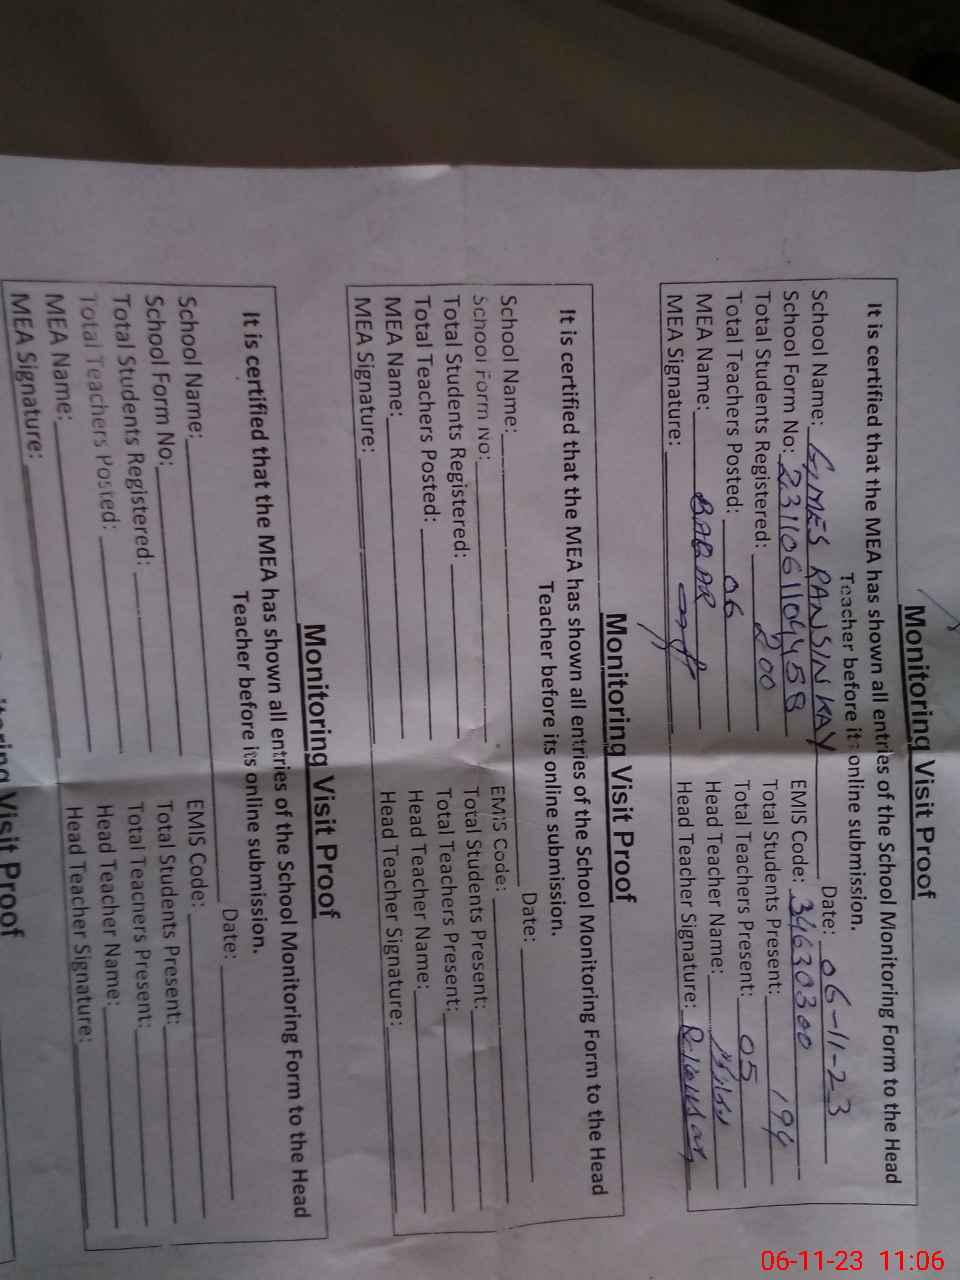 Monitoring Visit Proof
It is certified that the MEA has shown all entries of the School Monitoring Form to the Head
Teacher before its online submission.
School Name: GMES RANSINKAY Date: 06-11-23
School Form No: 2311061104458 EMIS Code: 34630300
Total Students Registered: 200 Total Students Present: 194
Total Teachers Posted: 06 Total Teachers Present: 05
MEA Name: BABAR Head Teacher Name:
MEA Signature: Head Teacher Signature:
Monitoring Visit Proof
It is certified that the MEA has shown all entries of the School Monitoring Form to the Head
Teacher before its online submission.
School Name: Date:
School Form No: EMIS Code:
Total Students Registered: Total Students Present:
Total Teachers Posted: Total Teachers Present:
MEA Name: Head Teacher Name:
MEA Signature: Head Teacher Signature:
Monitoring Visit Proof
It is certified that the MEA has shown all entries of the School Monitoring Form to the Head
Teacher before its online submission.
School Name: Date:
School Form No: EMIS Code:
Total Students Registered: Total Students Present:
Total Teachers Posted: Total Teachers Present:
MEA Name: Head Teacher Name:
MEA Signature: Head Teacher Signature:
Visit Proof
06-11-23 11:06